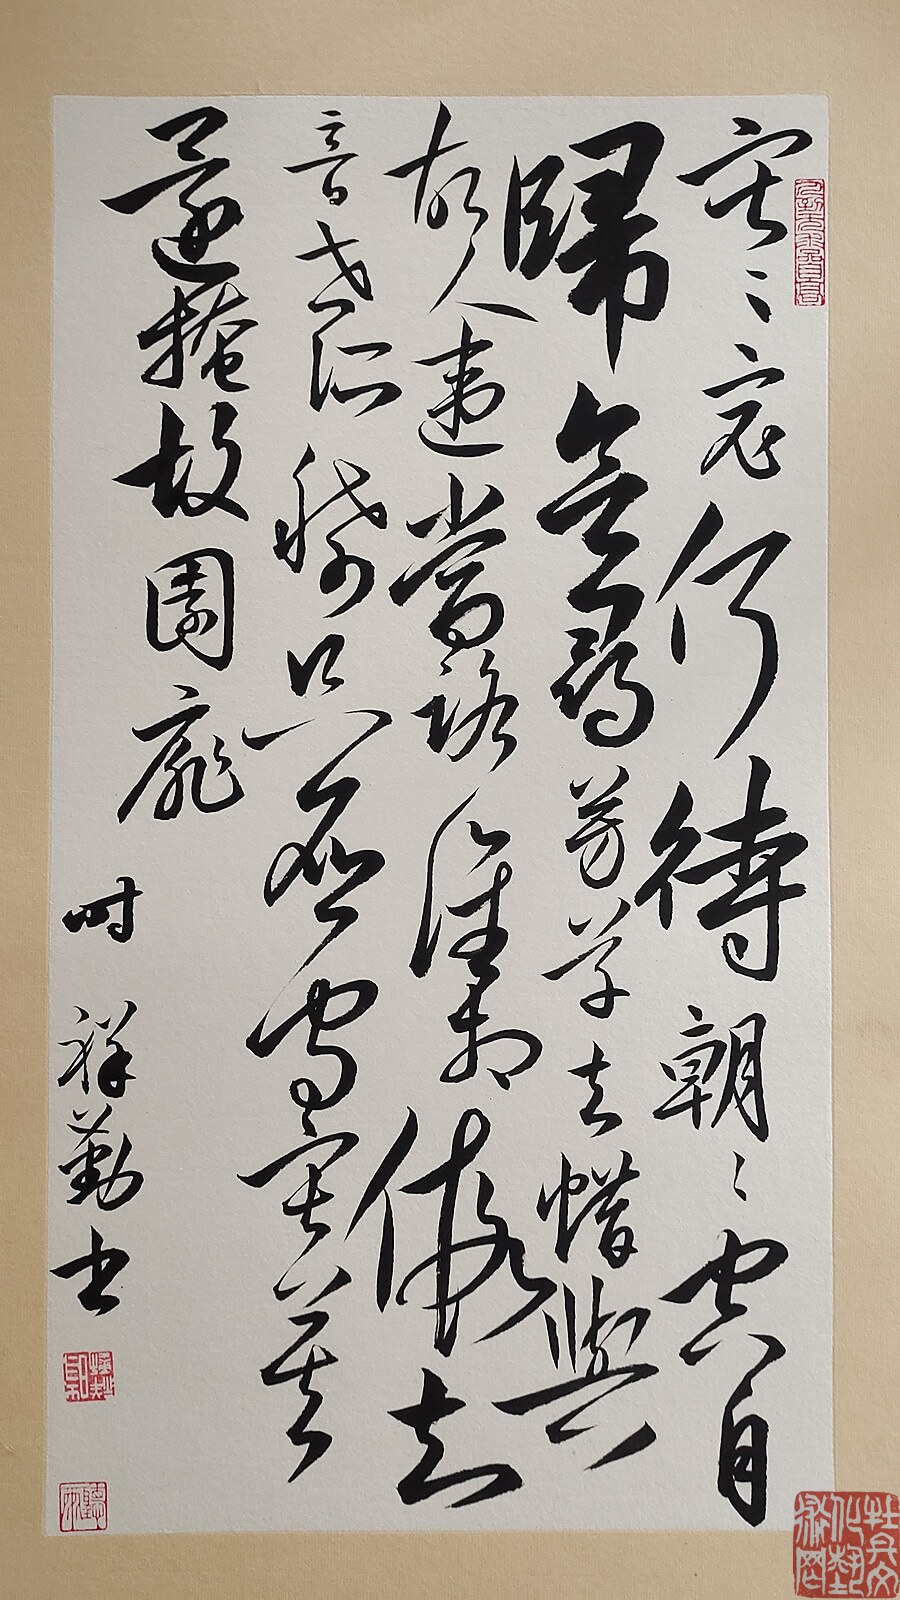 寂〻竟何待朝〻空自
歸欲尋芳草去惜與
故人違當路誰相假知
音世所稀只應守寂寞
還掩故園扉
时祥勤书